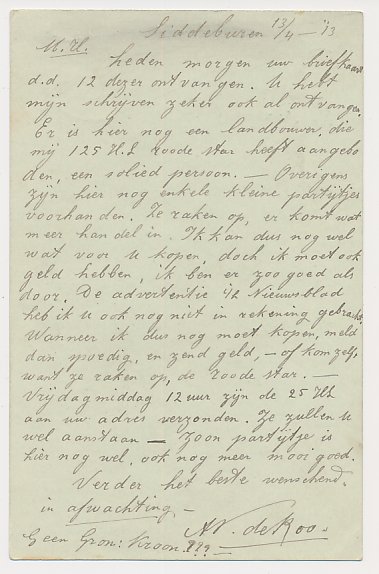 Siddeburen 13/4 – '13
M.H.
heden morgen uw briefkaart
d.d. 12 dezer ontvangen. U hebt
mijn schrijven zeker ook al ontvangen.
Er is hier nog een landbouwer, die
mij 125 H.L. roode star heeft aangebo
den, een solied persoon. — Overigens
zijn hier nog enkele kleine partijtjes
voorhanden. Ze raken op, er komt wat
meer handel in. Ik kan dus nog wel
wat voor u kopen, doch ik moet ook
geld hebben, ik ben er zoo goed als
door. De advertentie i/h Nieuwsblad
heb ik u ook nog niet in rekening gebracht.
Wanneer ik dus nog moet kopen, meld
dan spoedig, en zend geld, – of kom zelf,
want ze raken op, de roode star. —
Vrijdagmiddag 12 uur zijn de 25 HL
aan uw adres verzonden. Ze zullen u
wel aanstaan — Zoon partijtje is
hier nog wel, ook nog meer moor goed.
Verder het beste wenschend.
in afwachting –
de Roo.
Geen Gron: Kroon. ???